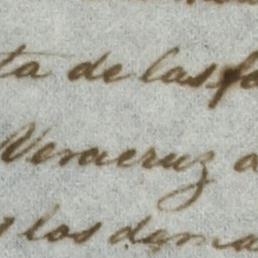 ta de las fa
Veracruz a
s los dema